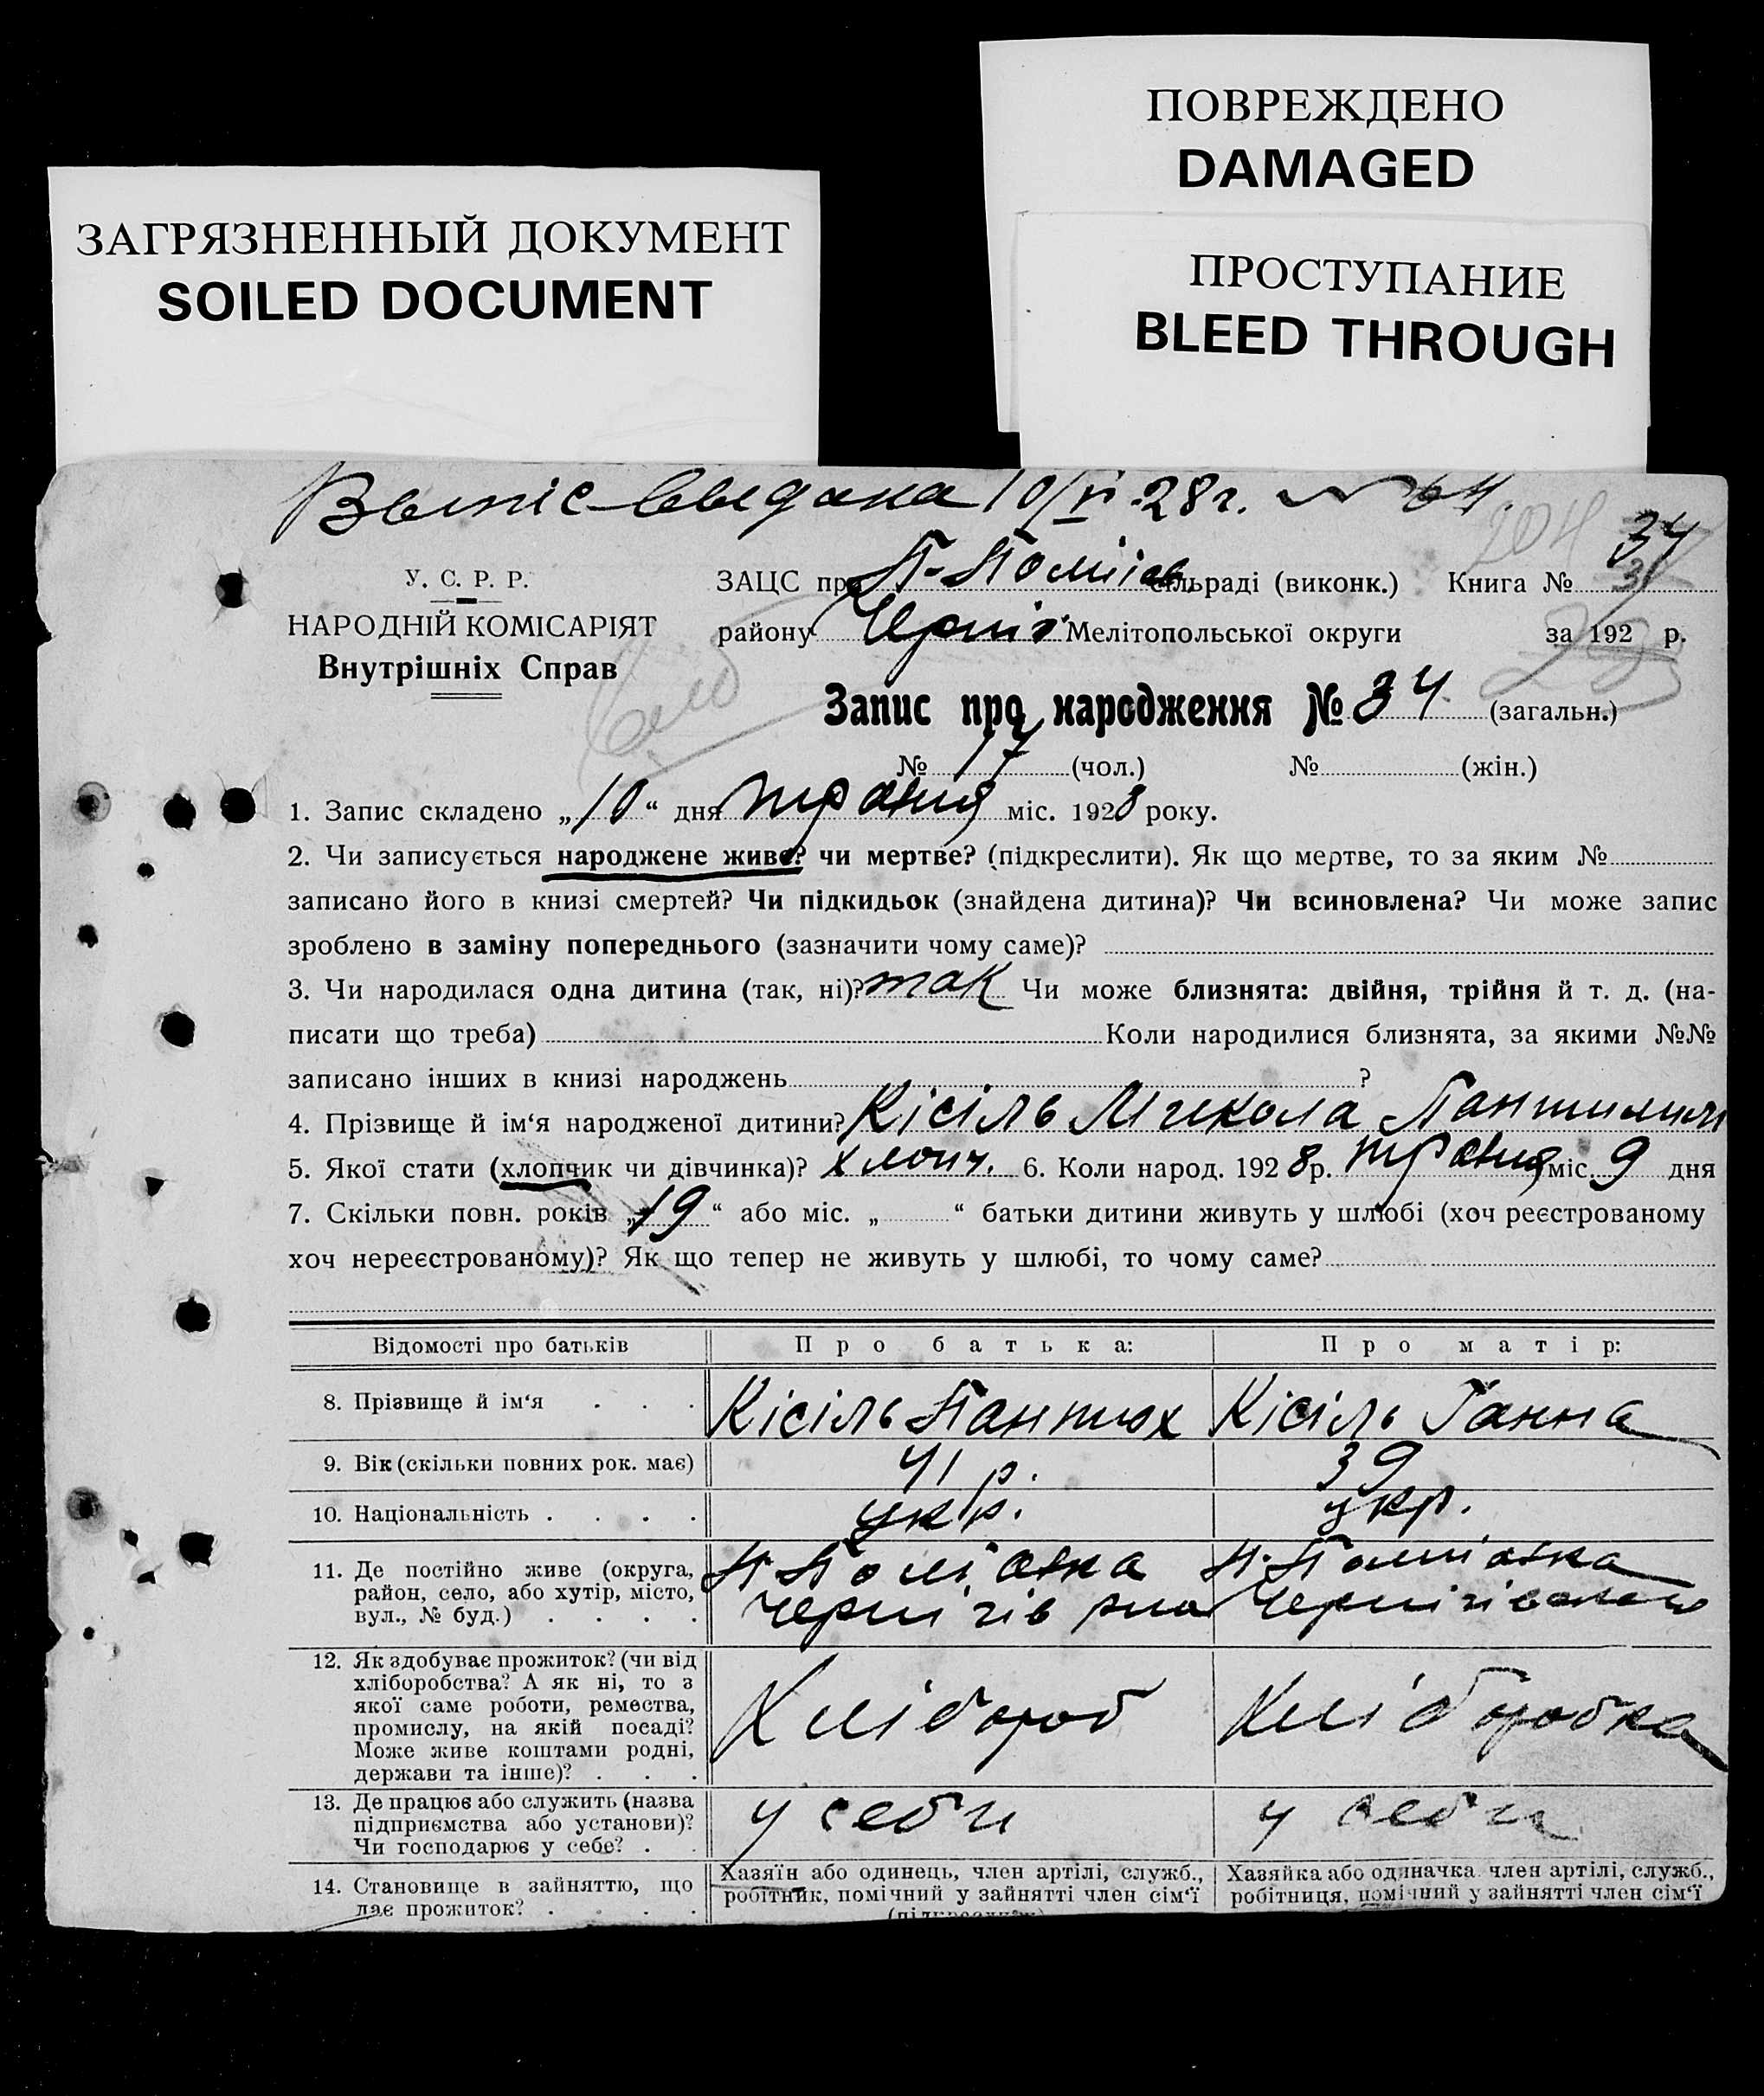 ПОВРЕЖДЕНО
DAMAGED
ЗАГРЯЗНЕННЫЙ ДОКУМЕНТ
SOILED DOCUMENT
ПРОСТУПАНИЕ
BLEED THROUGH
10/VI 28 г. № 64.
34
У. С. Р. Р.
НАРОДНІЙ КОМІСАРІЯТ
Внутрішніх Справ
ЗАЦС при сільраді (виконк.) Книга №
району Черніг Мелітопольської округи за 192 р.
Запис про народження № 34 (загальн.)
№ 17 (чол.) № (жін.)
1. Запис складено „10“ дня травня міс. 1928 року.
2. Чи записується народжене живе? чи мертве? (підкреслити). Як що мертве, то за яким №
записано його в книзі смертей? Чи підкидьок (знайдена дитина)? Чи всиновлена? Чи може запис
зроблено в заміну попереднього (зазначити чому саме)?
3. Чи народилася одна дитина (так, ні)? так Чи може близнята: двійня, трійня й т. д. (на-
писати що треба) Коли народилися близнята, за якими №№
записано інших в книзі народжень ?
4. Прізвище й ім‘я народженої дитини? Кісіль Микола
5. Якої стати (хлопчик чи дівчинка)? хлопч. 6. Коли народ. 1928 р. травня міс. 9 дня
7. Скільки повн. років „19“ або міс. „ “ батьки дитини живуть у шлюбі (хоч реєстрованому
хоч нереєстрованому)? Як що тепер не живуть у шлюбі, то чому саме?
Відомості про батьків Про батька: Про матір:
8. Прізвище й ім‘я . . . Кісіль Пантюх Кісіль Ганна
9. Вік (скільки повних рок. має) 41 р. 39
10. Національність . . . . укр. укр.
11. Де постійно живе (округа,
район, село, або хутір, місто,
вул., № буд.) . . . .
12. Як здобуває прожиток? (чи від
хліборобства? А як ні, то з
якої саме роботи, ремества,
промислу, на якій посаді?
Може живе коштами родні,
держави та інше)? . . .
Хлібороб Хліборобка
13. Де працює або служить (назва
підприємства або установи)?
Чи господарює у себе? . .
у себи у себи
14. Становище в зайняттю, що
дає прожиток? . . . .
Хазяїн або одинець, член артілі, служб.,
робітник, помічний у зайнятті член сім‘ї
Хазяйка або одиначка член артілі, служб.,
робітниця, помічний у зайнятті член сім‘ї